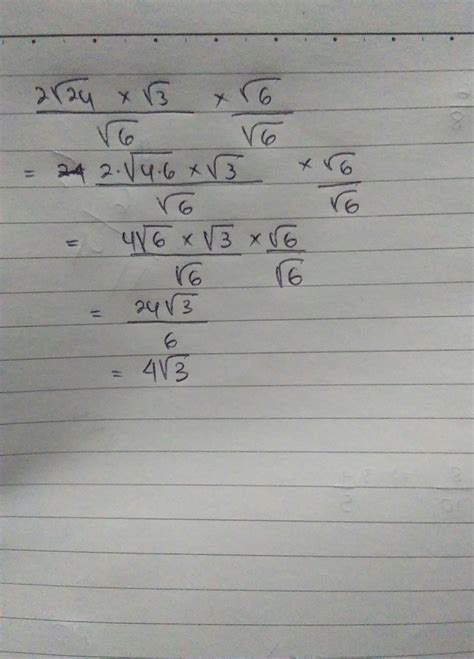 2√24 × √3 / √6 × √6 / √6
= 2·√4·6 × √3 / √6 × √6 / √6
= 4√6 × √3 / √6 × √6 / √6
= 24√3 / 6
= 4√3